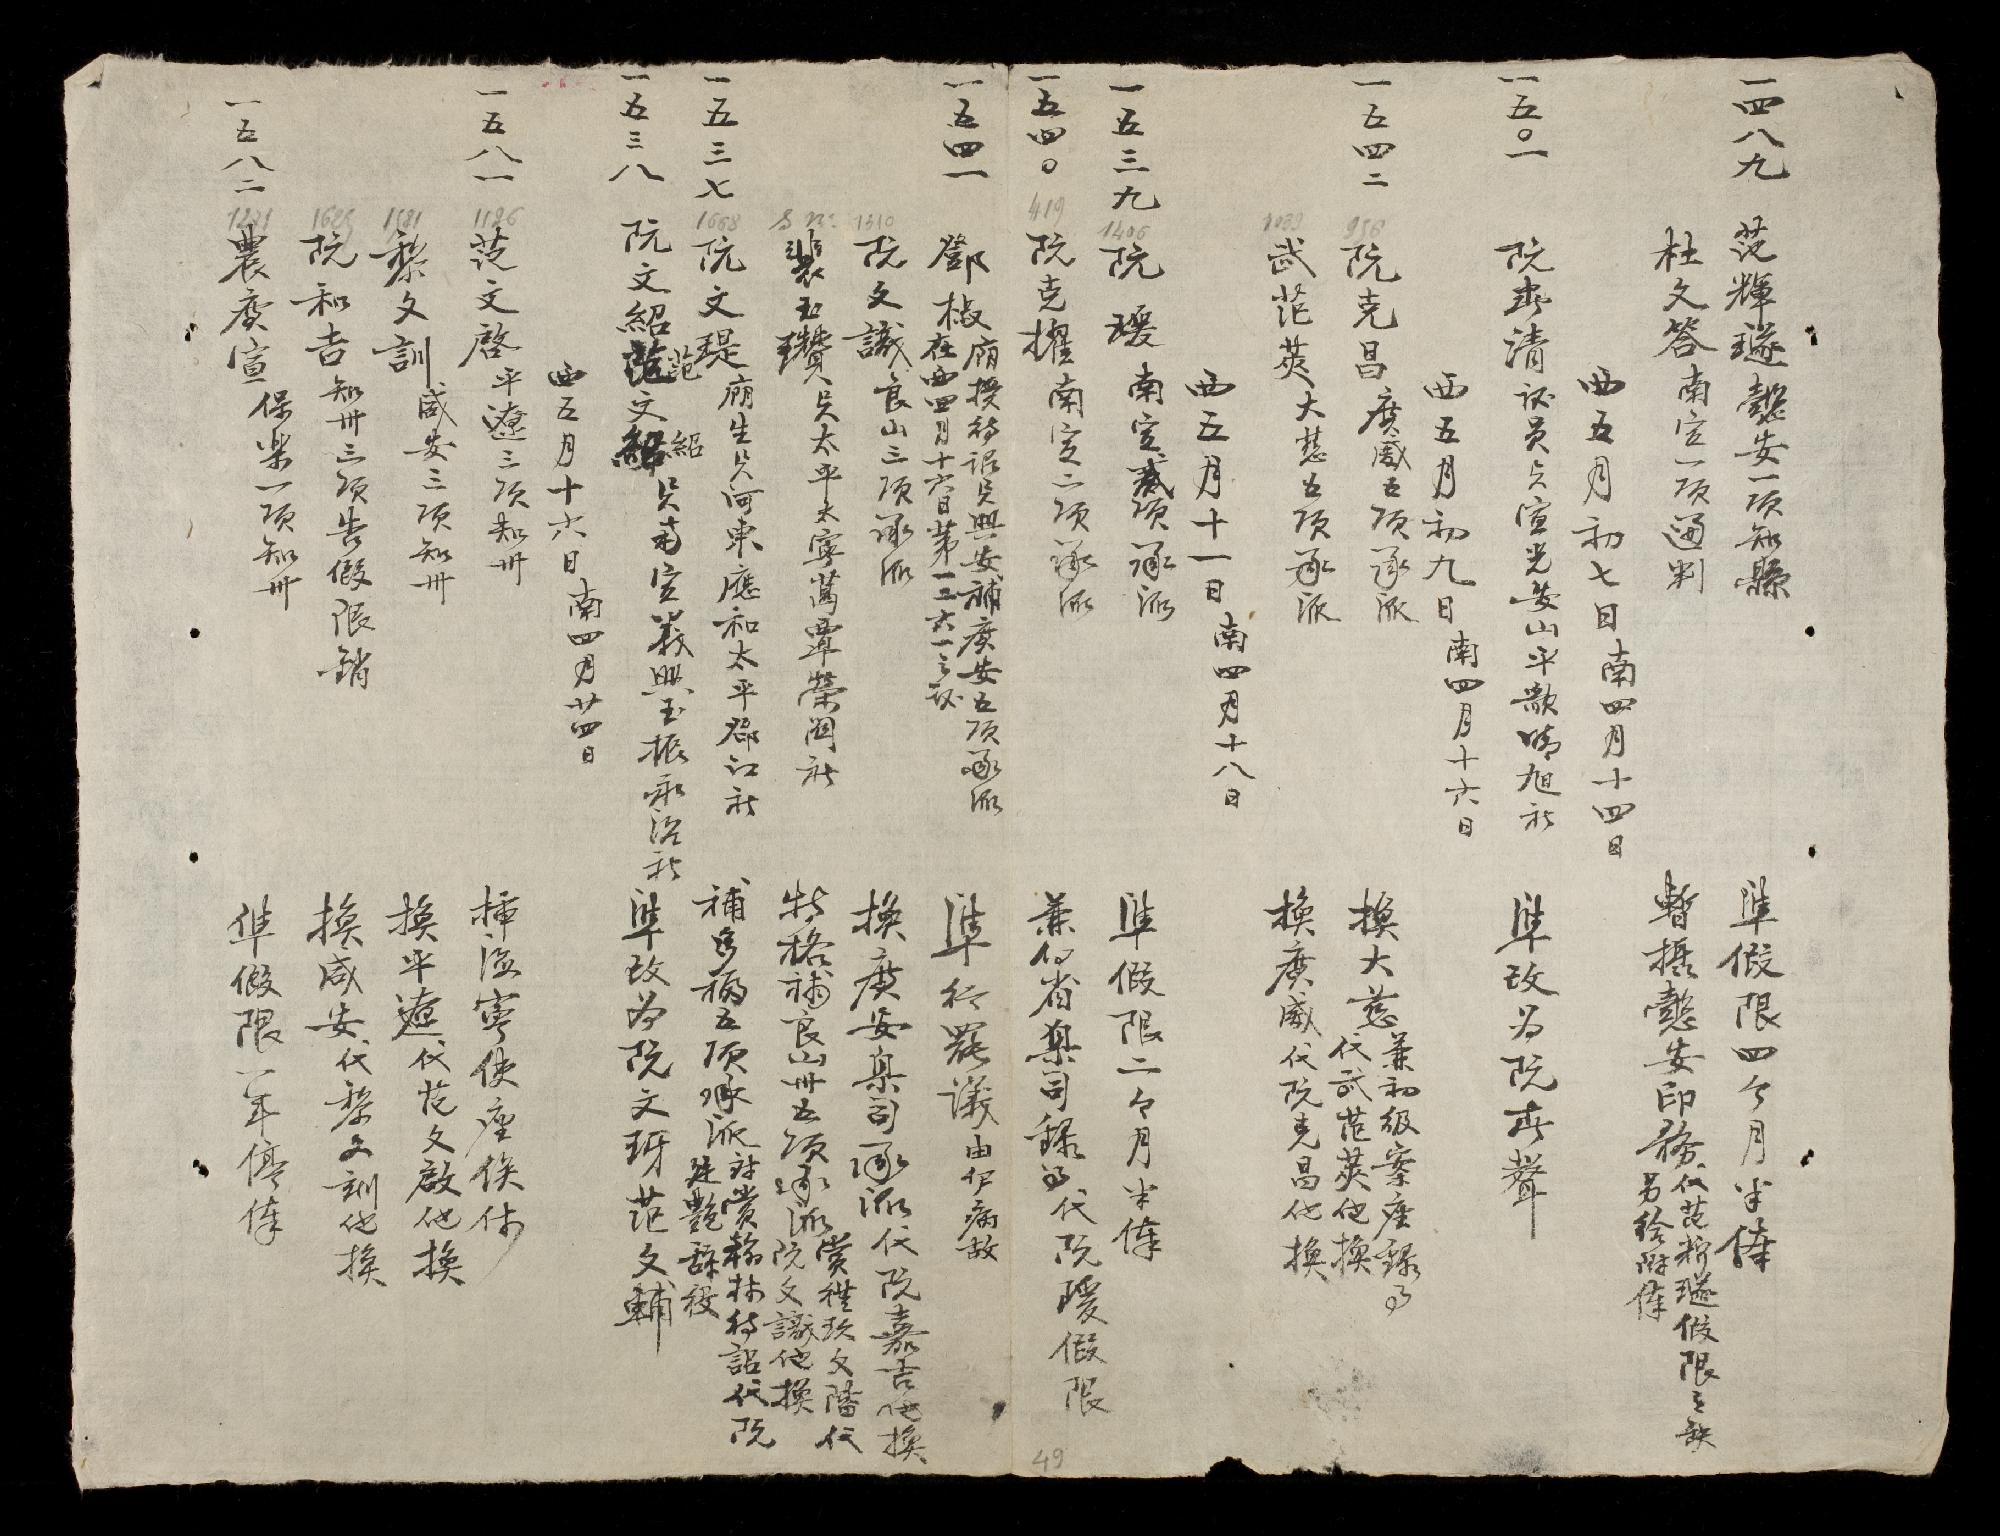 一四八九 范輝璲 懿安一項知縣 準假限四个月半俸
杜文答 南定一項通判 暫攝懿安印務 代范輝璲假限之缺 另給附俸
西五月初七日 南四月十四日
一五〇一 阮春清 設員 宣光安山平歌 旭社 準改为阮春聲
西五月初九日 南四月十六日
一五四二 956 阮克昌 廣威五項承派 換大慈 兼初級案座錄事 代武范英他換
1033 武范英 大慈五項承派 換廣威 代阮克昌他換
西五月十一日 南四月十八日
一五三九 1406 阮瑗 南定 項承派 準假限二个月半俸
一五四〇 419 阮克擢 南定二項承派 兼仍省臬司錄事 代阮瑗假限
一五四一 鄧椒 廟授待詔 興安補廣安五項承派 在西四月十六日第一三六一之設 準行罷議 由伊病故
1310 阮文識 良山三項承派 換廣安臬司承派 代阮嘉吉他換
裴玉瓚 太平太寧 社 特格補良山州五項承派 賞 文階 代阮文識他換
一五三七 1668 阮文瑅 廟生 河東應和太平 江社 補 五項承派 賞翰林待詔 代阮廷艷辭役
一五三八 阮文紹 范文紹 南定義興 社 準改为阮文玡 范文輔
西五月十六日 南四月廿四日
一五八一 1186 范文啓 平遼三項知州 插 寧使座俟 
1581 黎文訓 咸安三項知州 換平遼 代范文啟他換
1625 阮和吉 知州三項告假限銷 換咸安 代黎文訓他換
一五八二 1221 農慶宣 保樂一項知州 準假限一年停俸
49